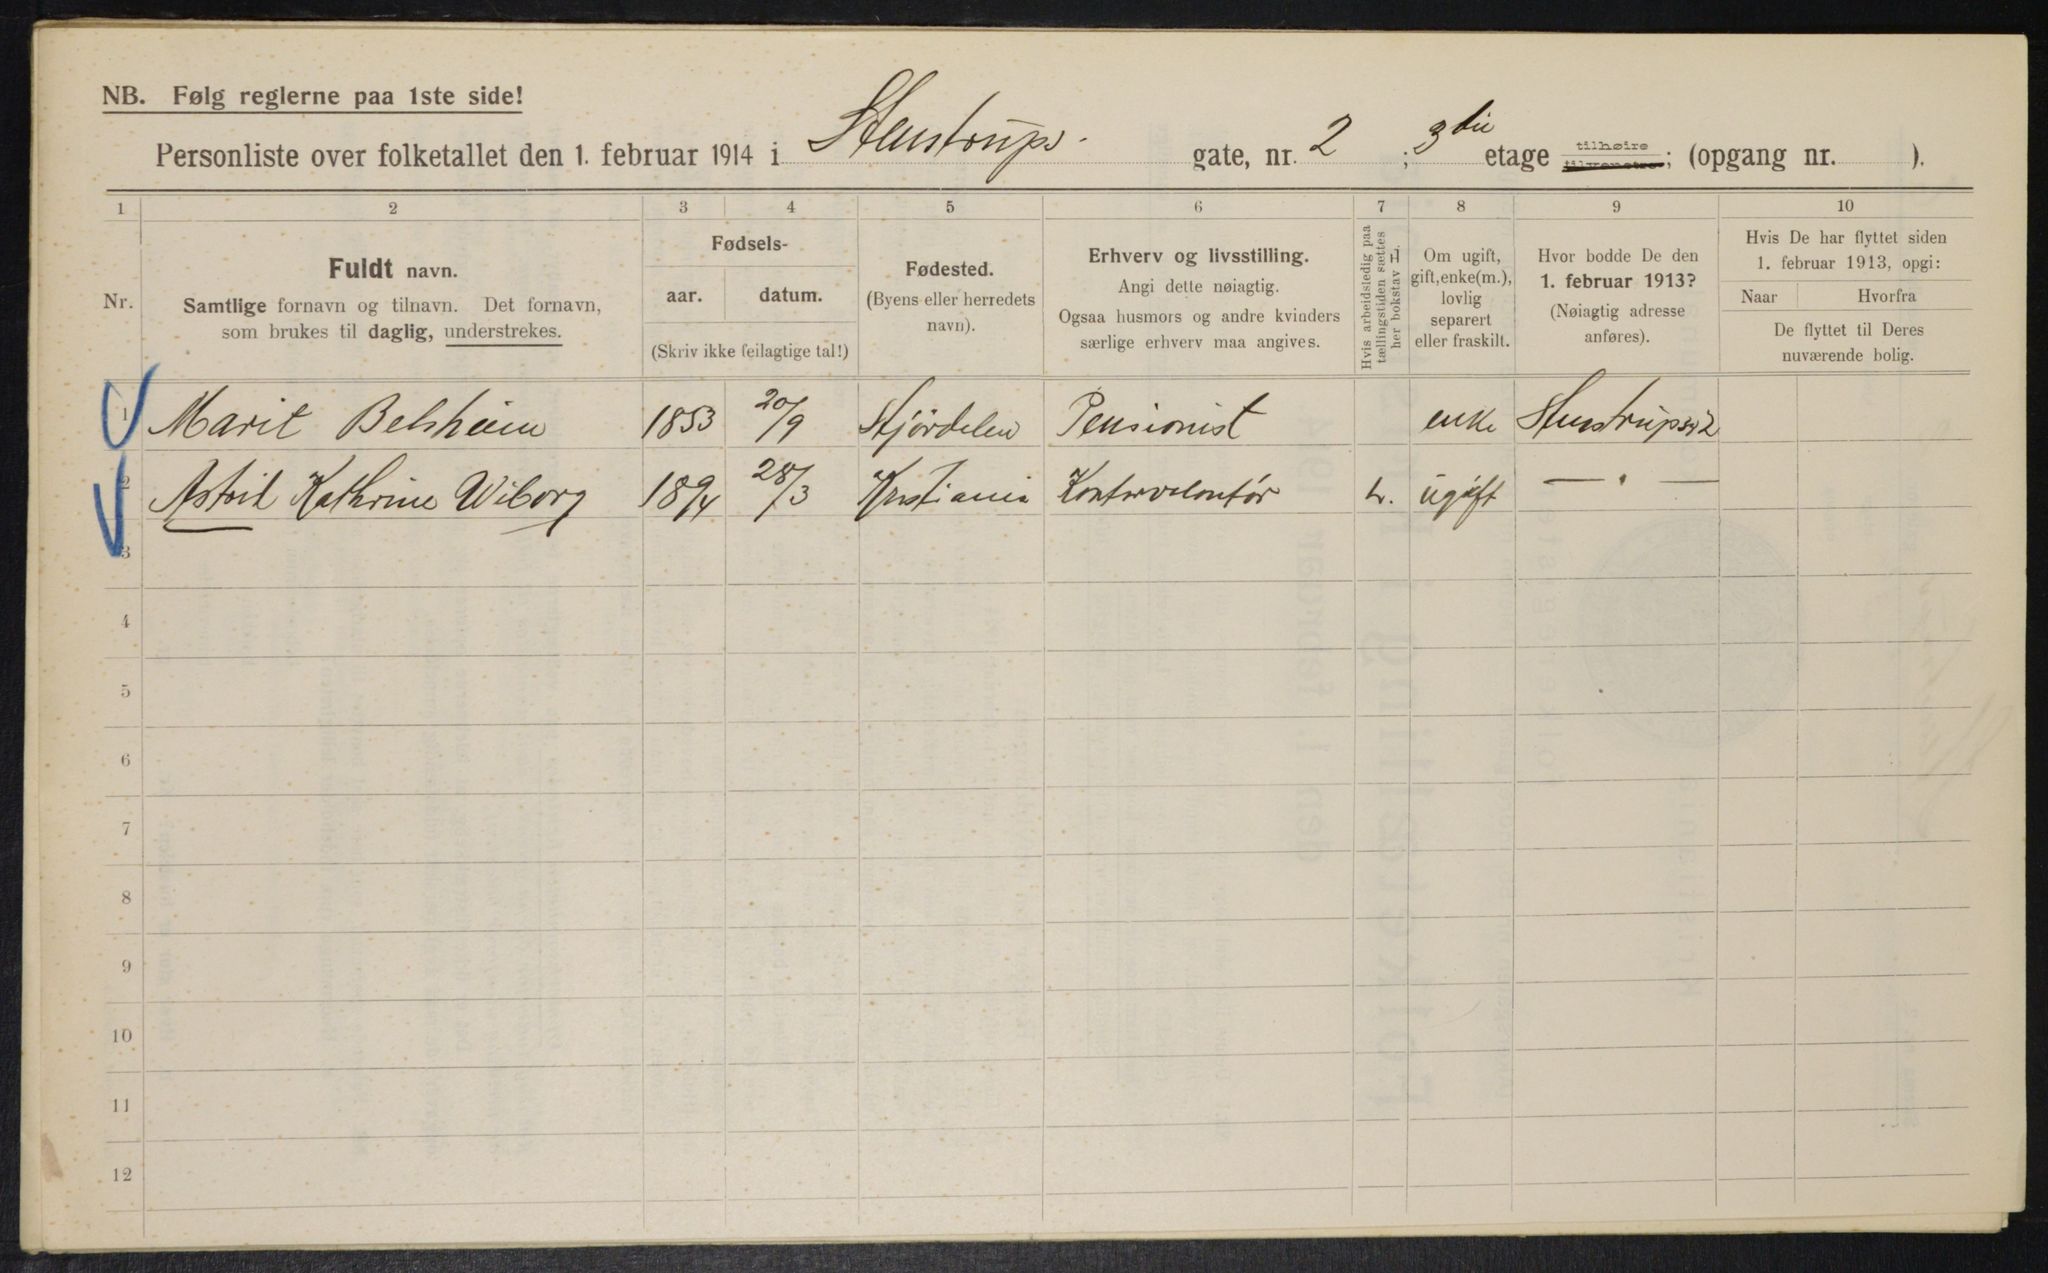 NB. Følg reglerne paa 1ste side!
Personliste over folketallet den 1. februar 1914 i Stenstrups gate, nr. 2 ; 3die etage tilhøire tilvenstre; (opgang nr. ).
1 2 3 4 5 6 7 8 9 10
Nr.
Fuldt navn.
Samtlige fornavn og tilnavn. Det fornavn,
som brukes til daglig, understrekes.
Fødsels-
aar. datum.
(Skriv ikke feilagtige tal!)
Fødested.
(Byens eller herredets
navn).
Erhverv og livsstilling.
Angi dette nøiagtig.
Ogsaa husmors og andre kvinders
særlige erhverv maa angives.
Hvis arbeidsledig paa
tællingstiden sættes
her bokstav L.
Om ugift,
gift, enke(m.),
lovlig
separert
eller fraskilt.
Hvor bodde De den
1. februar 1913?
(Nøiagtig adresse
anføres).
Hvis De har flyttet siden
1. februar 1913, opgi:
Naar Hvorfra
De flyttet til Deres
nuværende bolig.
1 Marit Belsheim 1853 20/9 Stjørdalen Pensionist enke Stenstrupsg 2
2 Astrid Kathrine Wiborg 1894 28/3 Kristiania Kontorvolontør L. ugift — " —
3
4
5
6
7
8
9
10
11
12